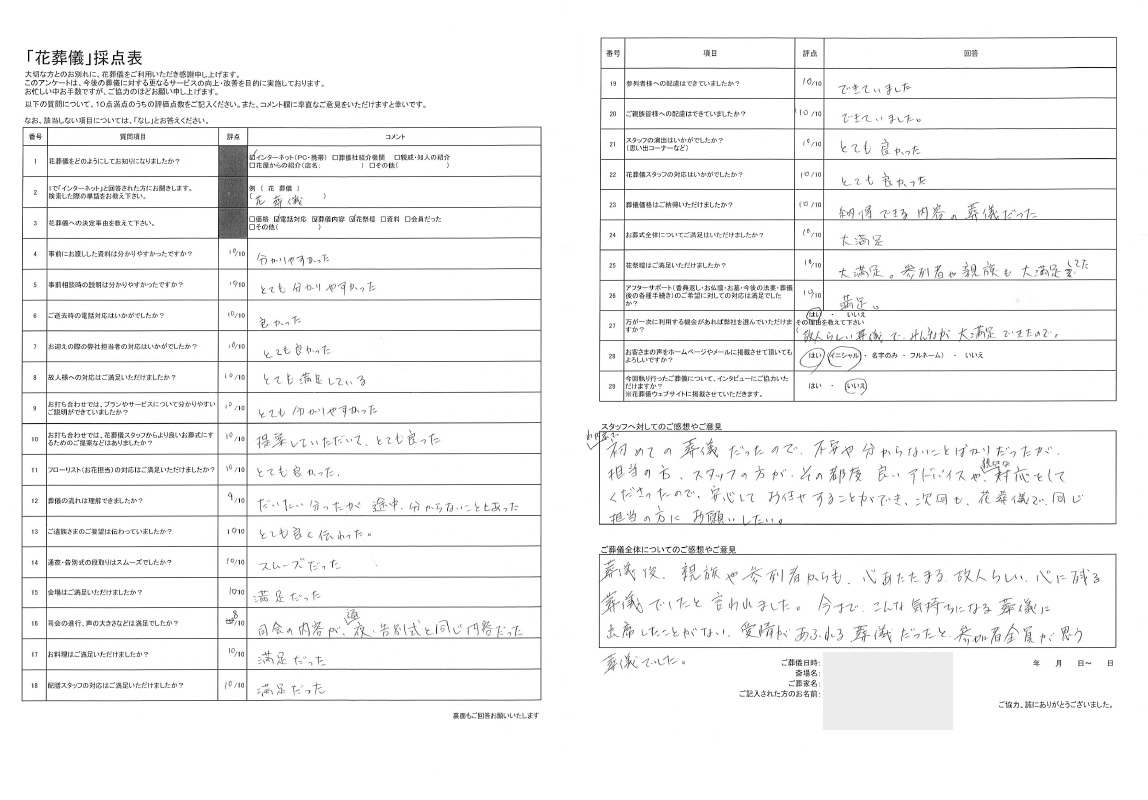 「花葬儀」採点表
大切な方とのお別れに、花葬儀をご利用いただき感謝申し上げます。
このアンケートは、今後の葬儀に対する更なるサービスの向上・改善を目的に実施しております。
お忙しい中お手数ですが、ご協力のほどお願い申し上げます。
以下の質問について、１０点満点のうちの評価点数をご記入ください。また、コメント欄に率直なご意見をいただけますと幸いです。
なお、該当しない項目については、「なし」とお答えください。
番号 質問項目 評点 コメント
1 花葬儀をどのようにしてお知りになりましたか？ ☑インターネット(PC・携帯) □葬儀社紹介機関 □親戚・知人の紹介
□花屋からの紹介(店名: ) □その他( )
2 1で「インターネット」と回答された方にお聞きします。
検索した際の単語をお教え下さい。 例 （ 花 葬儀 ）
（ 花 葬儀 ）
3 花葬儀への決定事由を教えて下さい。 □価格 ☑電話対応 ☑葬儀内容 ☑花祭壇 □資料 □会員だった
□その他( )
4 事前にお渡しした資料は分かりやすかったですか？ 10/10 分かりやすかった
5 事前相談時の説明は分かりやすかったですか？ 10/10 とても分かりやすかった
6 ご逝去時の電話対応はいかがでしたか？ 10/10 良かった
7 お迎えの際の弊社担当者の対応はいかがでしたか？ 10/10 とても良かった
8 故人様への対応はご満足いただけましたか？ 10/10 とても満足している
9 お打ち合わせでは、プランやサービスについて分かりやすい
ご説明ができていましたか？ 10/10 とても分かりやすかった
10 お打ち合わせでは、花葬儀スタッフからより良いお葬式に
するためのご提案などはありましたか？ 10/10 提案していただいて、とても良った
11 フローリスト(お花担当)の対応はご満足いただけましたか？ 10/10 とても良かった.
12 葬儀の流れは理解できましたか？ 9/10 だいたい分ったが 途中、分からないこともあった
13 ご遺族さまのご要望は伝わっていましたか？ 10/10 とても良く伝わった。
14 通夜・告別式の段取りはスムーズでしたか？ 10/10 スムーズだった
15 会場はご満足いただけましたか？ 10/10 満足だった
16 司会の進行、声の大きさなどは満足でしたか？ 8/10 司会の内容が、通夜・告別式と同じ内容だった
17 お料理はご満足いただけましたか？ 10/10 満足だった
18 配膳スタッフの対応はご満足いただけましたか？ 10/10 満足だった
裏面もご回答お願いいたします
番号 項目 評点 回答
19 参列者様への配慮はできていましたか？ 10/10 できていました
20 ご親族皆様への配慮はできていましたか？ 10/10 できていました。
21 スタッフの演出はいかがでしたか？
(思い出コーナーなど) 10/10 とても良かった
22 花葬儀スタッフの対応はいかがでしたか？ 10/10 とても良かった
23 葬儀価格はご納得いただけましたか？ 10/10 納得できる内容の葬儀だった
24 お葬式全体についてご満足はいただけましたか？ 10/10 大満足
25 花祭壇はご満足いただけましたか？ 10/10 大満足。参列者や親族も大満足してた
26 アフターサポート(香典返し・お仏壇・お墓・今後の法要・葬儀
後の各種手続き)のご希望に対しての対応は満足でした
か？ 10/10 満足。
27 万が一次に利用する機会があれば弊社を選んでいただけま
すか？ はい ・ いいえ
その理由を教えて下さい
故人らしい葬儀で、みんなが大満足できたので。
28 お客さまの声をホームページやメールに掲載させて頂いても
よろしいですか？ はい （イニシャル ・ 名字のみ ・ フルネーム） ・ いいえ
29 今回執り行ったご葬儀について、インタビューにご協力いた
だけますか？
※花葬儀ウェブサイトに掲載させていただきます。 はい ・ いいえ
スタッフへ対してのご感想やご意見
初めての葬儀だったので、不安や分からないことばかりだったが、
担当の方、スタッフの方が、その都度良いアドバイスや、親切な対応をして
くださったので、安心してお任せすることができ、次回も、花葬儀で、同じ
担当の方にお願いしたい。
ご葬儀全体についてのご感想やご意見
葬儀後、親族や参列者からも、心あたたまる、故人らしい、心に残る
葬儀でしたと言われました。今まで、こんな気持ちになる葬儀に
出席したことがない、愛情があふれる葬儀だったと、参加者全員が思う
葬儀でした。
ご葬儀日時: 年 月 日～ 日
斎場名:
ご葬家名:
ご記入された方のお名前:
ご協力、誠にありがとうございました。